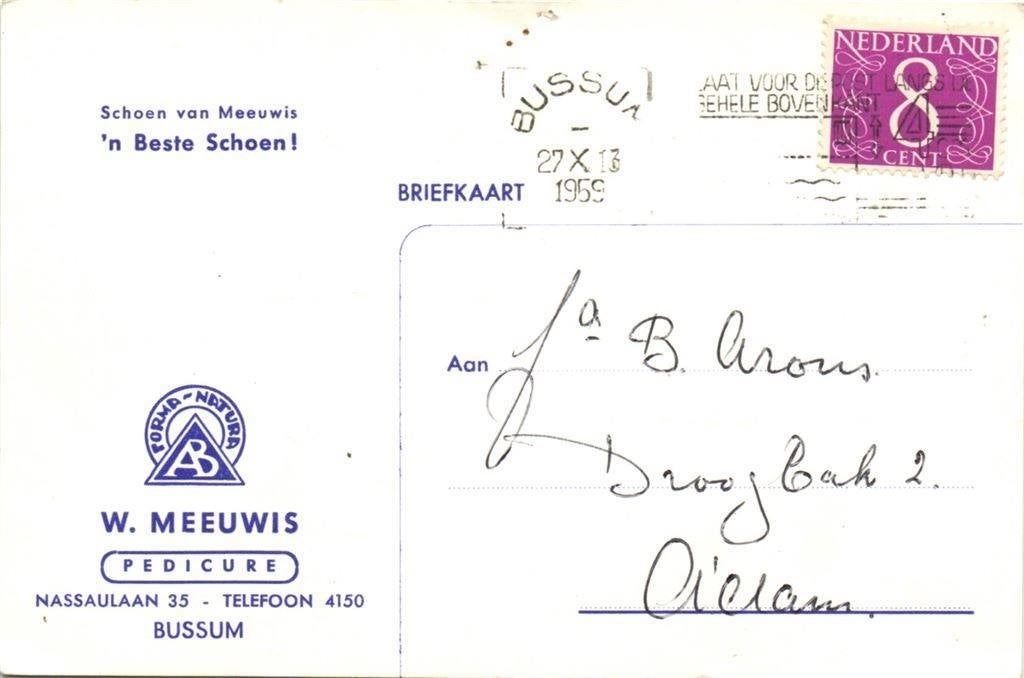 Schoen van Meeuwis
'n Beste Schoen!
BRIEFKAART
BUSSUM
27 X 13
1959
LAAT VOOR DE POST LANGS DE
GEHELE BOVENKANT
NEDERLAND
8
CENT
Aan Fa B. Arons.
Droogbak 2.
A'dam.
FORMA-NATURA
AB
W. MEEUWIS
PEDICURE
NASSAULAAN 35 - TELEFOON 4150
BUSSUM